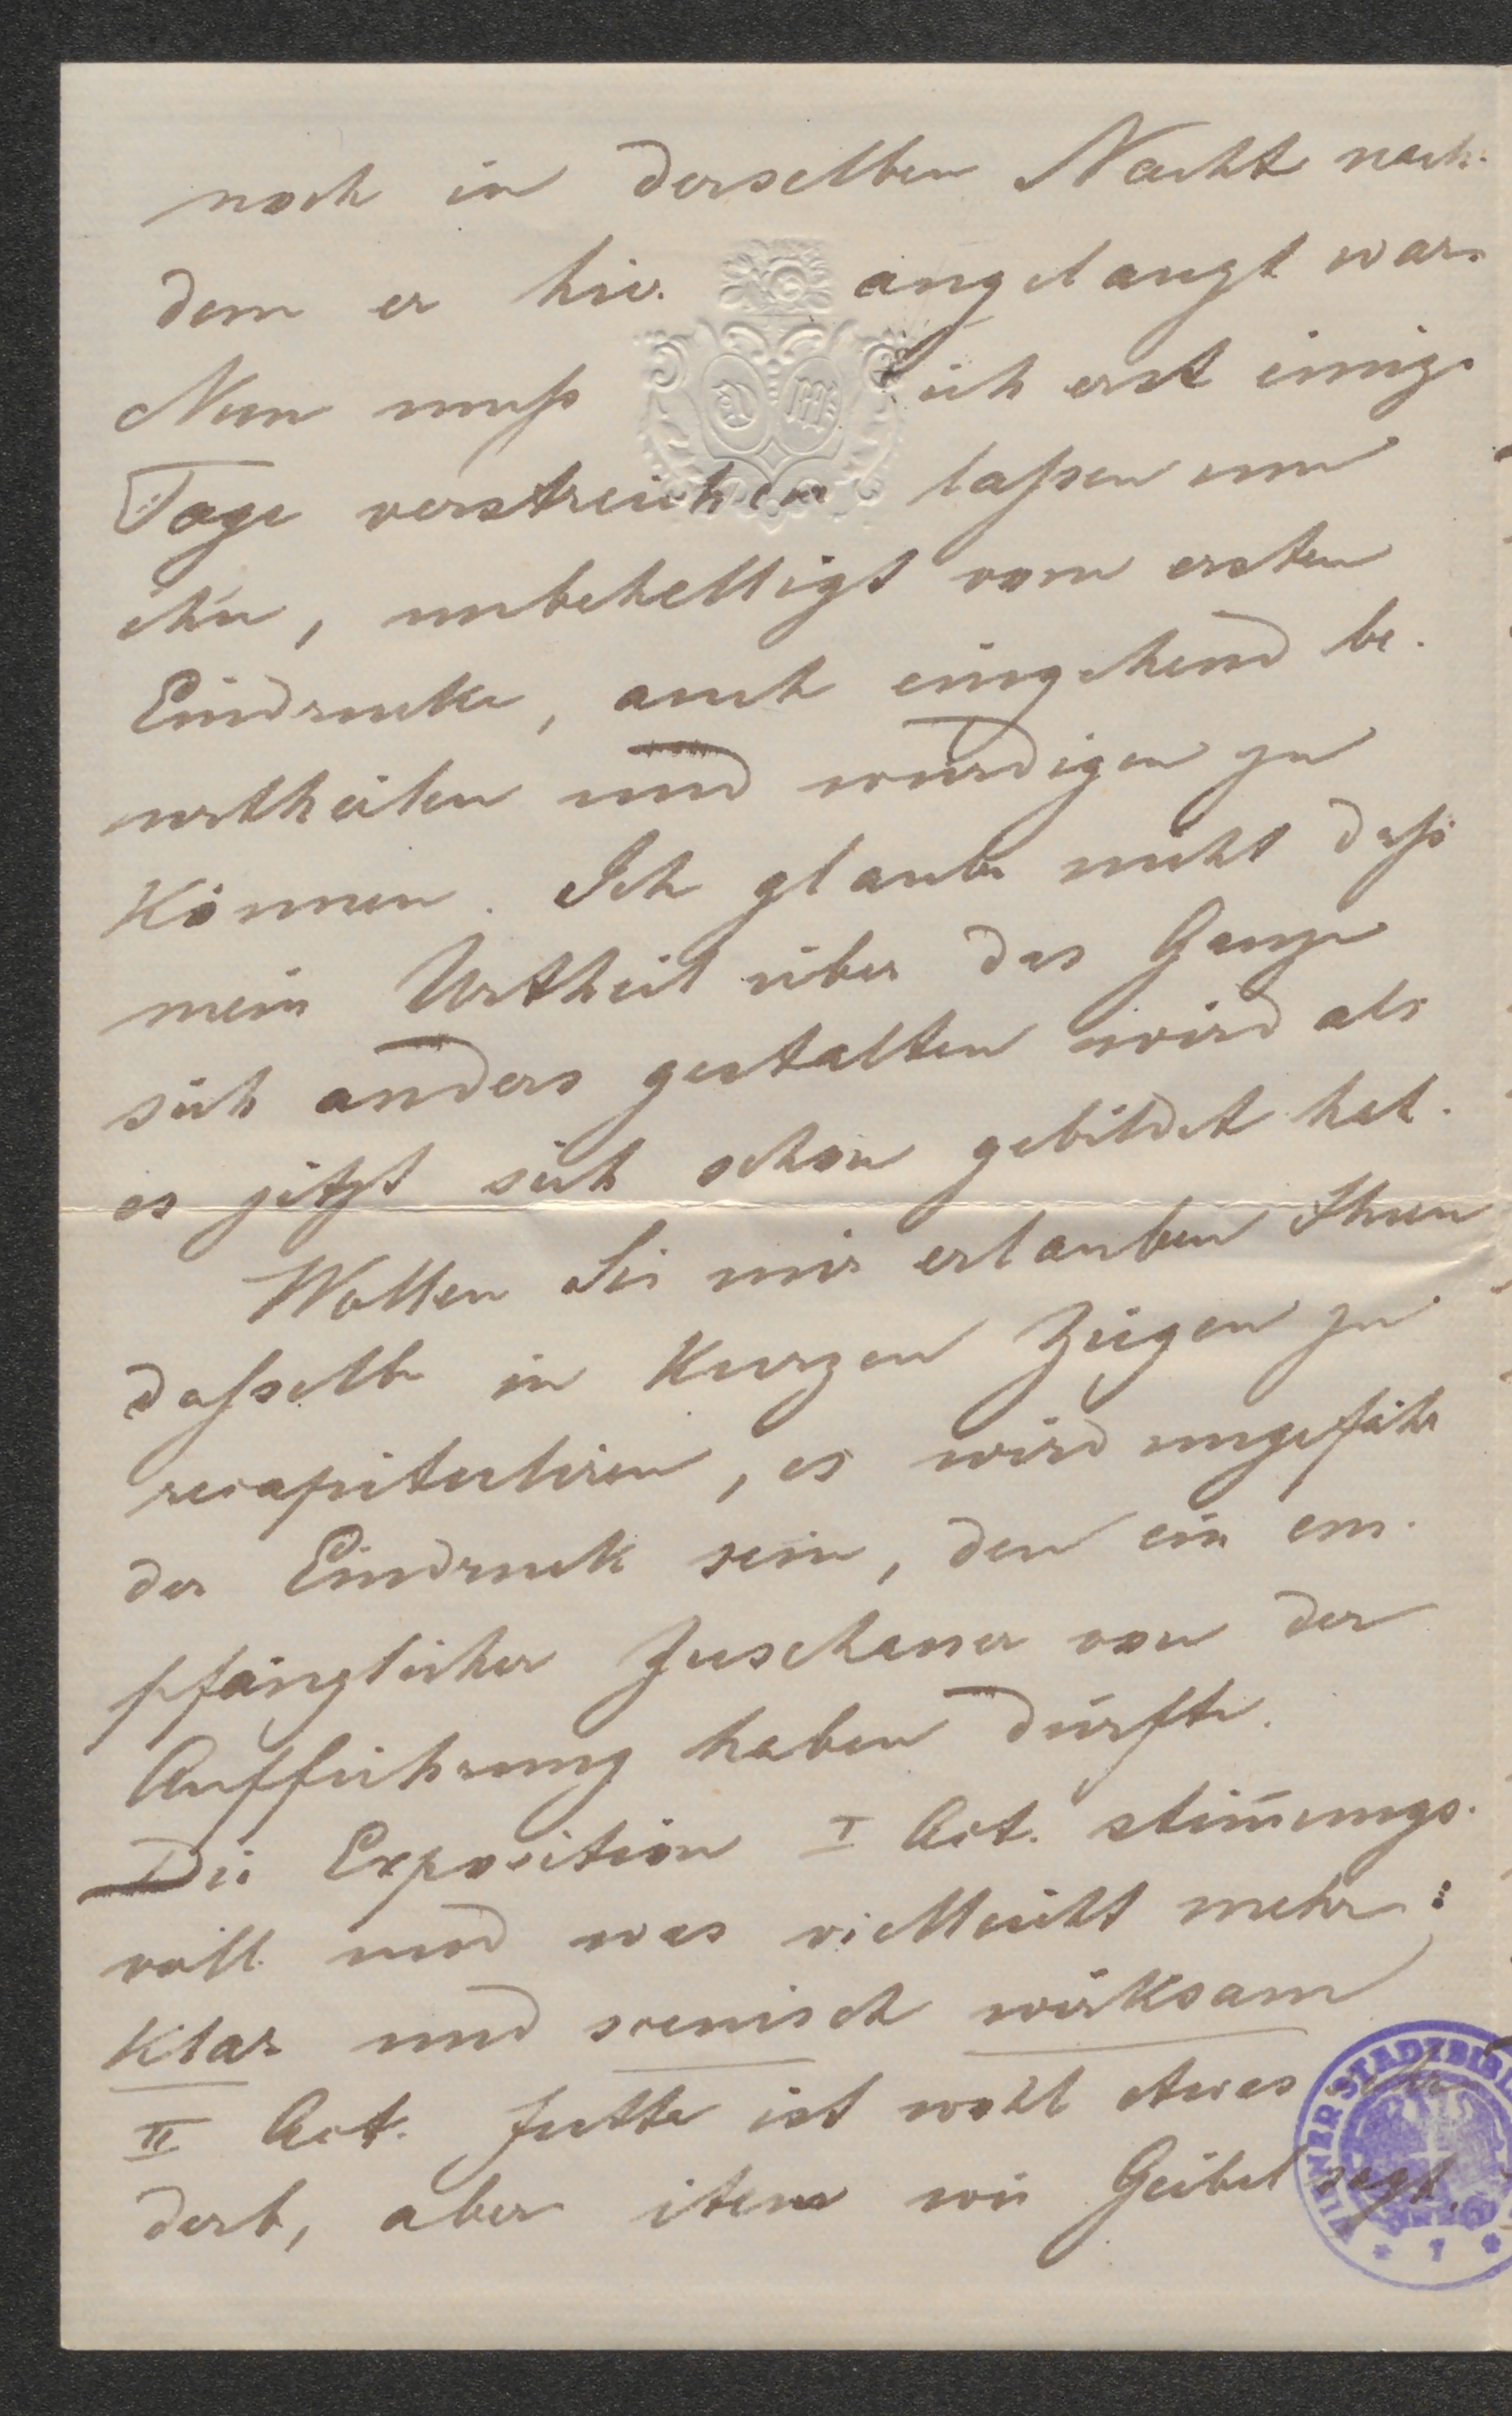 noch in derselben Nacht nach-
dem er hier angelangt war.
Nun muß ich erst einige
Tage verstreichen laßen um
ihn, unbehelligt vom ersten
Eindrucke, auch eingehend be-
urtheilen und würdigen zu
können. Ich glaube nicht daß
mein Urtheil über das Ganze
sich anders gestalten wird als
es jetzt sich schon gebildet hat.
Wollen Sie mir erlauben Ihnen
daßelbe in kurzen Zügen zu
recapituliren, es wird ungefähr
der Eindruck sein, den ein em-
pfänglicher Zuschauer von der
Aufführung haben dürfte.
Die Exposition I Act. stim̄ungs-
voll und was vielleicht mehr:
klar und scenisch wirksam
II Act. Jutta ist wohl etwas sehr
derb, aber item wie Geibel sagt.